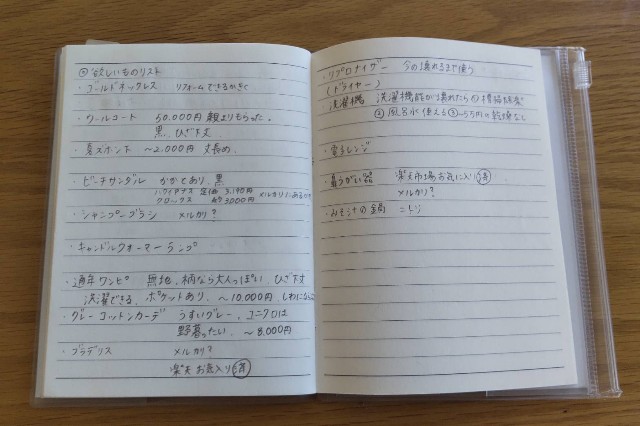 欲しいものリスト
・ゴールドネックレス リフォームできるかきく
・ウールコート 50,000円 親よりもらった。
黒 ひざ下丈
・夏ズボント 〜2,000円 丈長め、
・ビーチサンダル かかとあり 黒
ハワイアナス 定価 3,190円 メルカリにあるかも
クロックス 約3000円
・シャンプーブラシ メルカリ?
・キャンドルウォーマーランプ
・通年ワンピ 無地、柄なら大人っぽい ひざ下丈
洗濯できる、ポケットあり、〜10,000円 しわになら
・グレー コットンカーデ うすいグレー、ユニクロは
野暮ったい、〜8,000円
・ブラデリス メルカリ?
楽天 お気入り 済
・リプロナイザー 今の壊れるまで使う
(ドライヤー)
洗濯機 洗濯機能が壊れたら ①
②風呂水使える ③〜5万円 ④乾燥なし
・電子レンジ
・鼻うがい器 楽天市場お気に入り 済
メルカリ?
・みそ汁の鍋 ニトリ